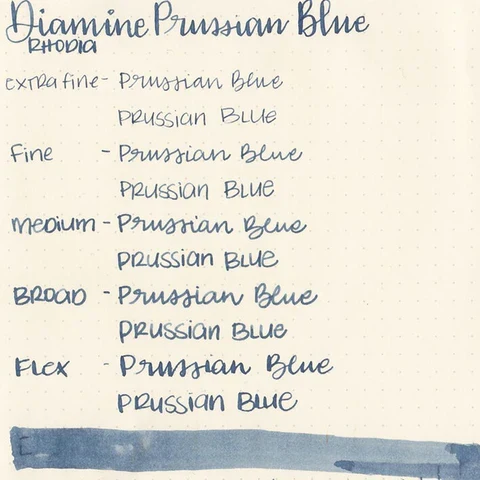 Diamine Prussian Blue
RHODIA
extra fine - Prussian Blue
PRUSSIAN BLUE
Fine - Prussian Blue
PRUSSIAN BLUE
Medium - Prussian Blue
PRUSSIAN BLUE
BROAD - Prussian Blue
PRUSSIAN BLUE
FLEX - Prussian Blue
PRUSSIAN BLUE
E